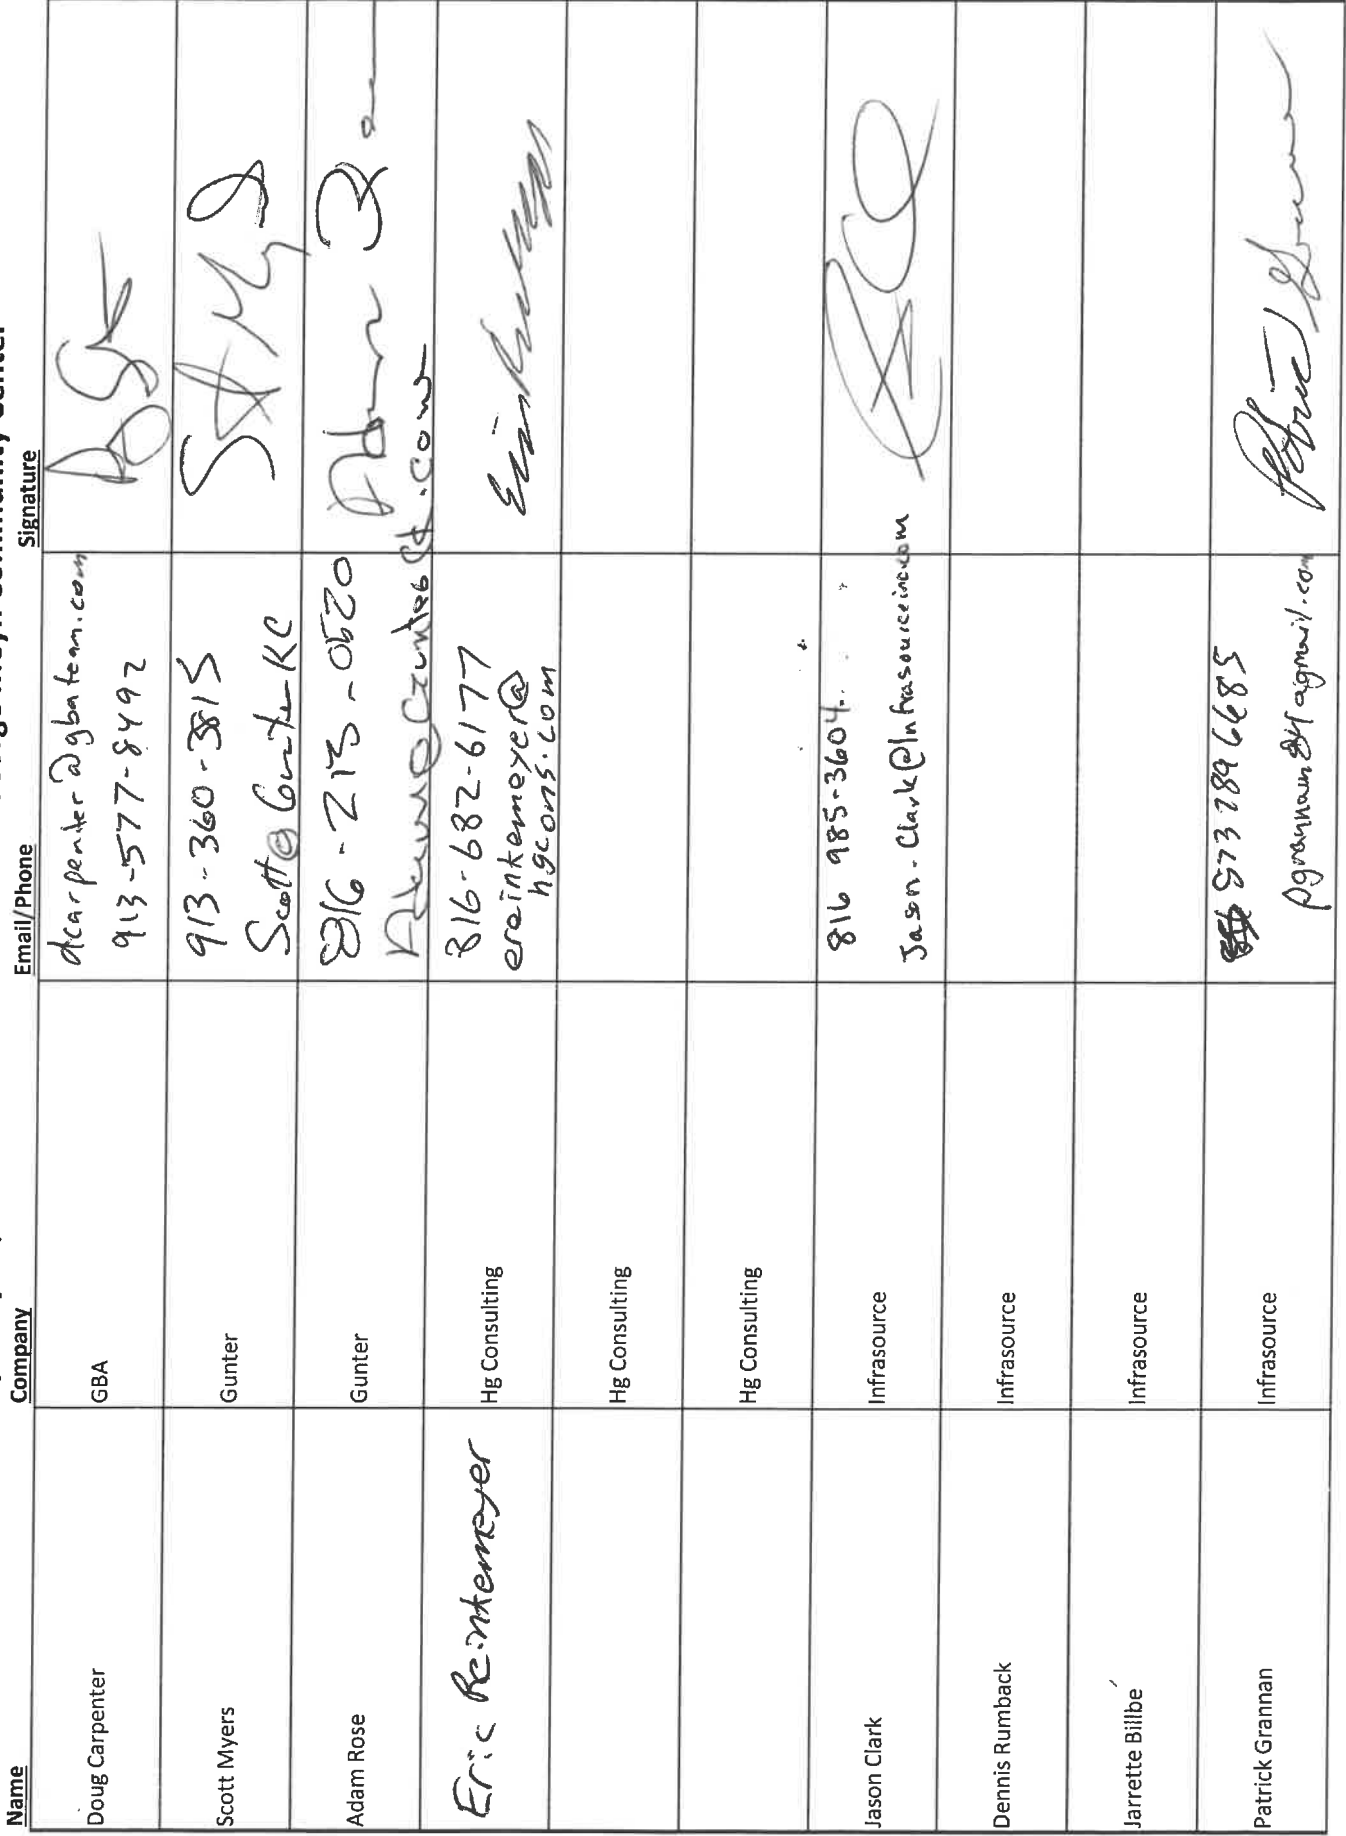 Community Center
Name Company Email/Phone Signature
Doug Carpenter GBA dcarpenter@gbateam.com
913-577-8492
Scott Myers Gunter 913-360-3815
Scott@GunterKC
Adam Rose Gunter 816-213-0520
Eric Reintemeyer Hg Consulting 816-682-6177
ereintemeyer@
hgcons.com
Hg Consulting
Hg Consulting
Jason Clark Infrasource 816 985-3604
Jason.Clark@Infrasourceinc.com
Dennis Rumback Infrasource
Jarrette Billbe Infrasource
Patrick Grannan Infrasource 573 289 6685